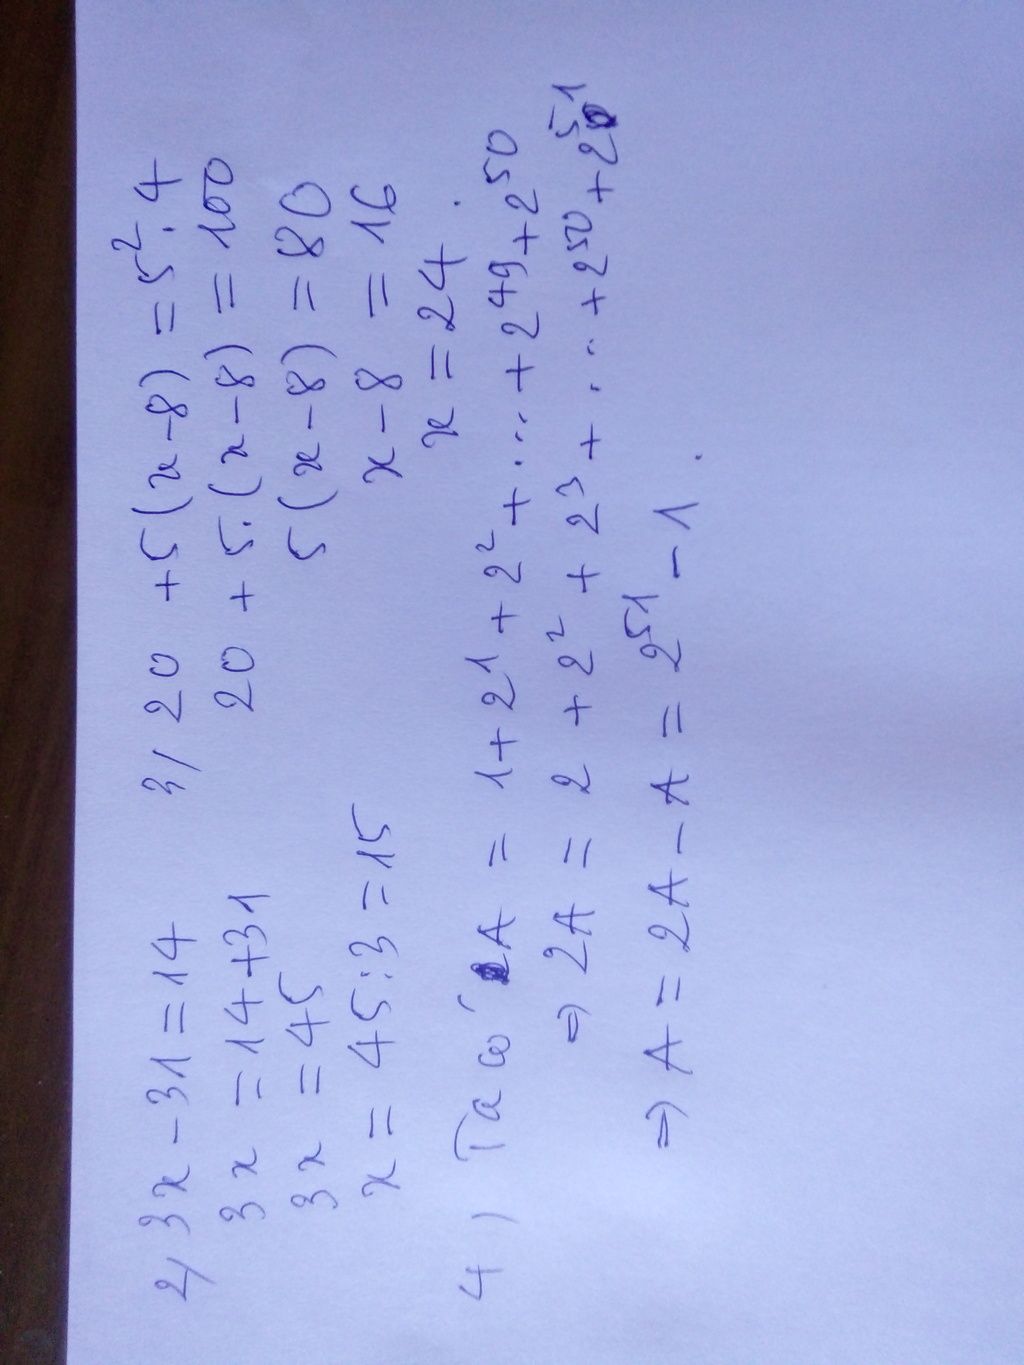 2/ 3x - 31 = 14
3x = 14 + 31
3x = 45
x = 45 : 3 = 15
3/ 20 + 5(x - 8) = 5² . 4
20 + 5.(x - 8) = 100
5(x - 8) = 80
x - 8 = 16
x = 24.
4) Ta có A = 1 + 2¹ + 2² + ... + 2⁴⁹ + 2⁵⁰
⇒ 2A = 2 + 2² + 2³ + ... + 2⁵⁰ + 2⁵¹
⇒ A = 2A - A = 2⁵¹ - 1.